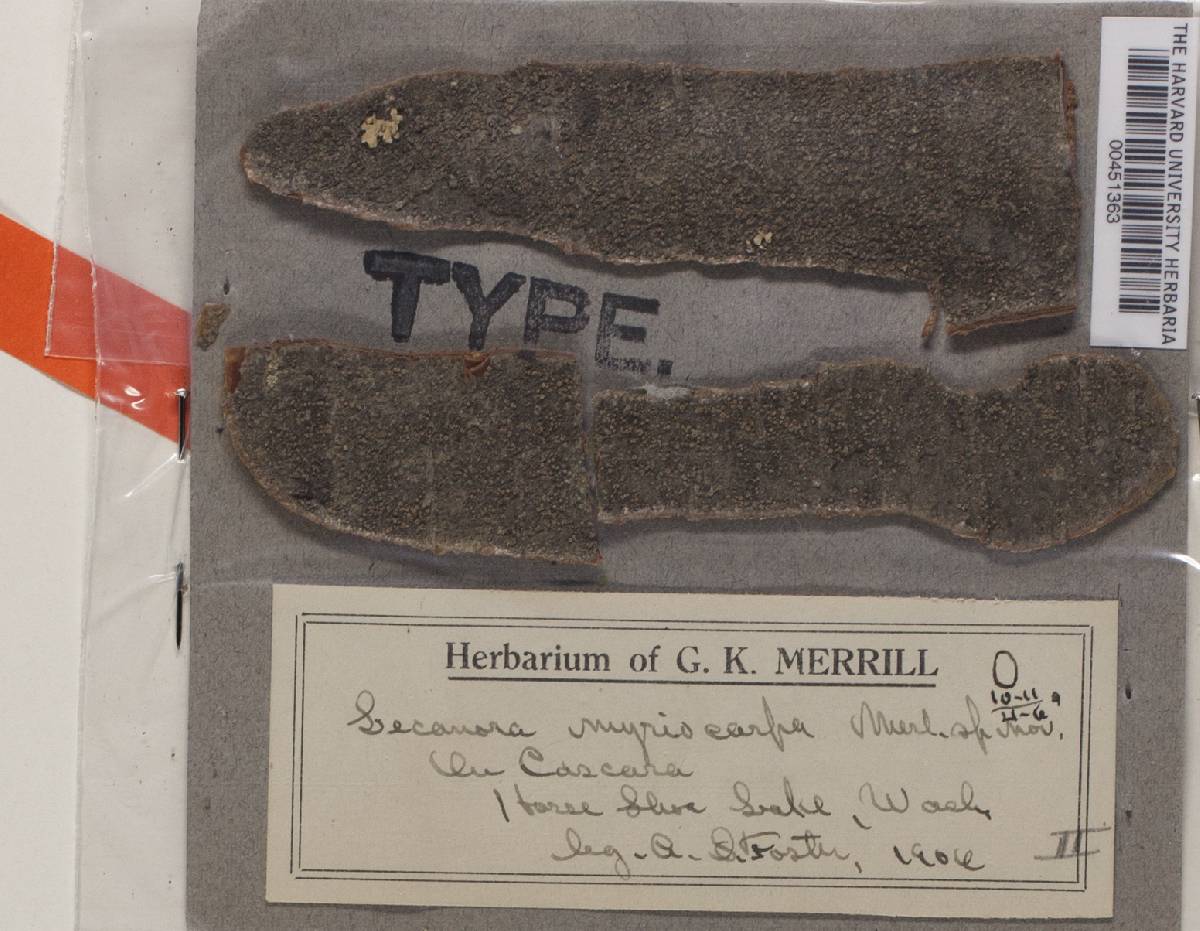 THE HARVARD UNIVERSITY HERBARIA
00451363
TYPE.
Herbarium of G. K. MERRILL
O
10-11
4-6
Lecanora myriocarpa Merl. sp. nov.
On Cascara
Horse Shoe Lake, Wash.
leg. A. S. Foster, 1906
II